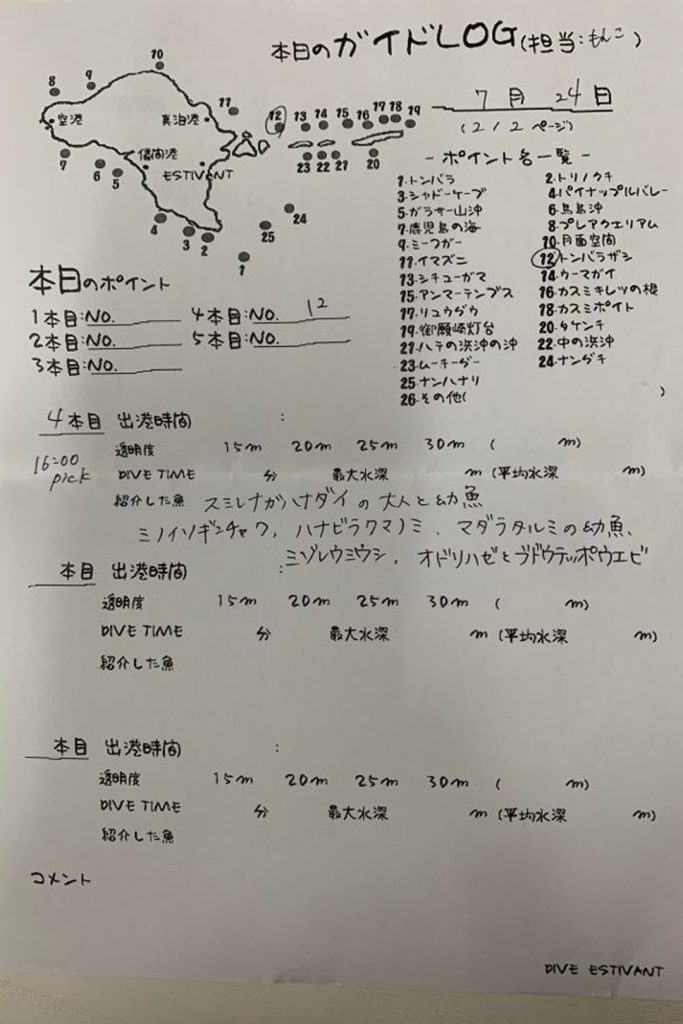 本日のガイドLOG(担当:もんこ)
7月 24日
(2/2 ページ)
10
8 9
空港 真泊港 11
12 13 14 15 16 17 18 19
7 6 5 儀間港 23 22 21 20
ESTIVANT
4 3 2 25 24
1
-ポイント名一覧-
1.トンバラ 2.トリノクチ
3.シャドーケーブ 4.パイナップルバレー
5.ガラサー山沖 6.鳥島沖
7.鹿児島の海 8.プレアクエリアム
9.ミーフガー 10.月面空間
11.イマズニ 12.トンバラザシ
13.シチューガマ 14.ウーマガイ
15.アンマーテンブス 16.カスミキレツの根
17.リュウダウ 18.カスミポイト
19.御願崎灯台 20.タケンチ
21.ハテの浜沖の沖 22.中の浜沖
23.ムーチーダー 24.ナングチ
25.ナンハナリ
26.その他( )
本日のポイント
1本目:NO. 4本目:NO. 12
2本目:NO. 5本目:NO.
3本目:NO.
4本目 出港時間 :
16:00 pick
透明度 15m 20m 25m 30m ( m)
DIVE TIME 分 最大水深 m (平均水深 m)
紹介した魚 スミレナガハナダイの大人と幼魚
ミノイソギンチャク、ハナビラクマノミ、マダラタルミの幼魚、
ミゾレウミウシ、オドリハゼとブドウテッポウエビ
本目 出港時間 :
透明度 15m 20m 25m 30m ( m)
DIVE TIME 分 最大水深 m (平均水深 m)
紹介した魚
本目 出港時間 :
透明度 15m 20m 25m 30m ( m)
DIVE TIME 分 最大水深 m (平均水深 m)
紹介した魚
コメント
DIVE ESTIVANT